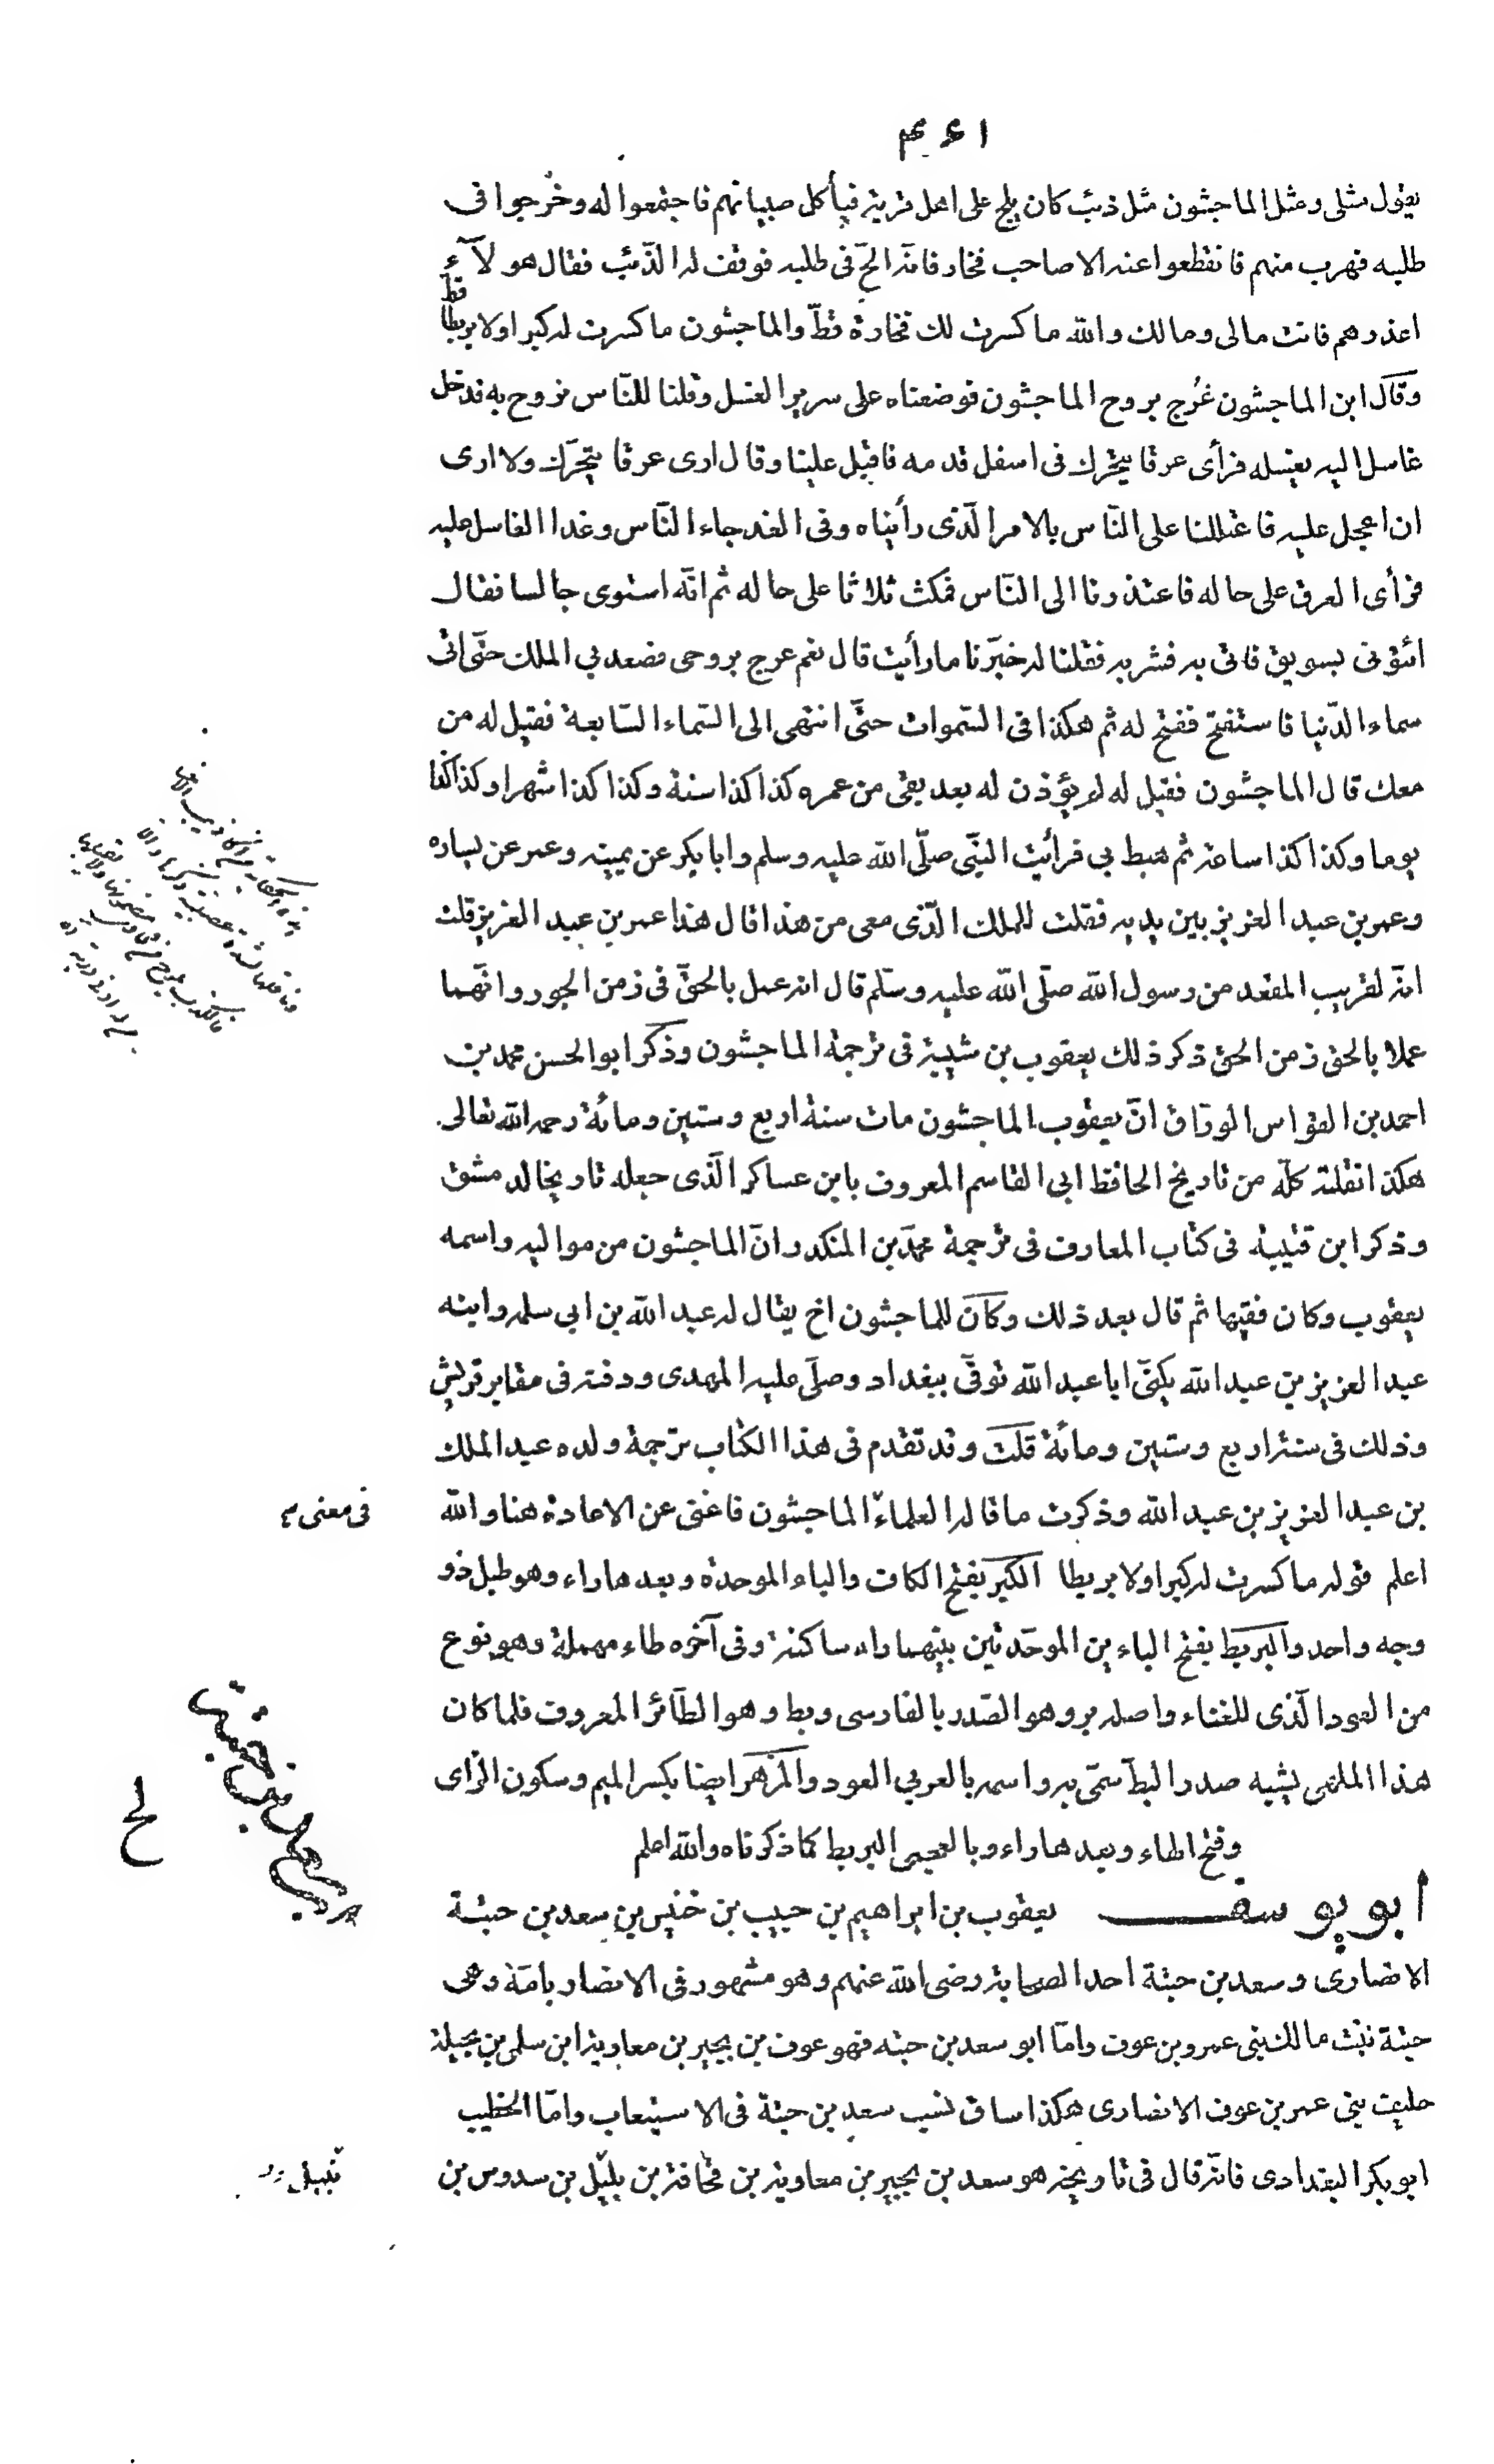 ٤٦١
يقول مثلى ومثل الماجشون مثل ذئب كان يلج على اهل قرية فيأكل صبيانهم فاجتمعوا له وخرجوا فى
طلبه فهرب منهم فانقطعوا عنه الا صاحب فخار فانه الحّ فى طلبه فوقف له الذّئب فقال هولآء
اعذرهم فانت مالى ومالك والله ما كسرت لك فخارة قطّ والماجشون ما كسرت له كبرا ولا بربطا قط
وقال ابن الماجشون عُرج بروح الماجشون فوضعناه على سرير الغسل وقلنا للنّاس نروح به فدخل
غاسل اليه يغسله فرأى عرقا يتحرك فى اسفل قدمه فاقبل علينا وقال ارى عرقا يتحرّك ولا ارى
ان اعجل عليه فاعتللنا على النّاس بالامر الّذى رأيناه وفى الغد جاء النّاس وغدا الغاسل عليه
فرأى العرق على حاله فاعتذرنا الى النّاس فمكث ثلاثا على حاله ثم انّه استوى جالسا فقال
ائتونى بسويق فاتى به فشربه فقلنا له خبّرنا ما رأيت قال نعم عرج بروحى فصعد بي الملك حتّى اتى
سماء الدّنيا فاستفتح ففتح له ثم هكذا فى السّموات حتّى انتهى الى السّماء السّابعة فقيل له من
معك قال الماجشون فقيل له لم يؤذن له بعد بقى من عمره كذا كذا سنة وكذا كذا شهرا وكذا كذا
يوما وكذا كذا ساعة ثم هبط بى فرأيت النبّى صلّى الله عليه وسلم وابا بكر عن يمينه وعمر عن يساره
وعمر بن عبد العزيز بين يديه فقلت للملك الّذى معى من هذا قال هذا عمر بن عبد العزيز قلت
انه لقريب المقعد من رسول الله صلّى الله عليه وسلّم قال انه عمل بالحقّ فى زمن الجور وانّهما
عملا بالحق زمن الحق ذكر ذلك يعقوب بن شيبة فى ترجمة الماجشون وذكر ابو الحسن محمد بن
احمد بن القواس الورّاق انّ يعقوب الماجشون مات سنة اربع وستين ومائة رحمه الله تعالى.
هكذا نقلته كلّه من تاريخ الحافظ ابى القاسم المعروف بابن عساكر الّذى جعله تاريخا لدمشق
وذكر ابن قتيبة فى كتاب المعارف فى ترجمة محمّد بن المنكدر انّ الماجشون من مواليه واسمه
يعقوب وكان فقيها ثم قال بعد ذلك وكان للماجشون اخ يقال له عبد الله بن ابى سلمه وابنه
عبد العزيز بن عبد الله يكنّى ابا عبد الله توفّى ببغداد وصلّى عليه المهدى ودفنه فى مقابر قريش
وذلك فى سنة اربع وستين ومائة قلت وقد تقدم فى هذا الكتاب ترجمة ولده عبد الملك
بن عبد العزيز بن عبد الله وذكرت ما قاله العلماء الماجشون فاغنى عن الاعادة هنا والله
فى معنى
اعلم قوله ما كسرت له كبرا ولا بربطا الكبر بفتح الكاف والباء الموحدة وبعدها راء وهو طبل ذو
وجه واحد والبربط بفتح الباء ين الموحّدتين بينهما راء ساكنة وفى آخره طاء مهملة وهو نوع
من العود الّذى للغناء واصله بر وهو الصّدر بالفارسى وبط وهو الطّائر المعروف فلما كان
هذا الملهى يشبه صدر البطّ سمّى به واسمه بالعربي العود والمزهر ايضا بكسر الميم وسكون الزّاى
وفتح الهاء وبعدها راء وبالعجمى البربط كما ذكرناه والله اعلم
ابو يوسف يعقوب بن ابراهيم بن حبيب بن خنيس بن سعد بن حبتة
الانصارى وسعد بن حبتة احد الصحابة رضى الله عنهم وهو مشهور فى الانصار بامّه وهى
حبتة بنت مالك بنى عمرو بن عوف وامّا ابو سعد بن حبته فهو عوف بن بجير بن معاوية ابن سلمى بن بجيلة
حليف بنى عمر بن عوف الانصارى هكذا ساق نسب سعد بن حبتة فى الاستيعاب وامّا الخطيب
ابو بكر البغدادى فانّه قال فى تاريخه هو سعد بن بجير بن معاوية بن قحافة بن بليل بن سدوس بن